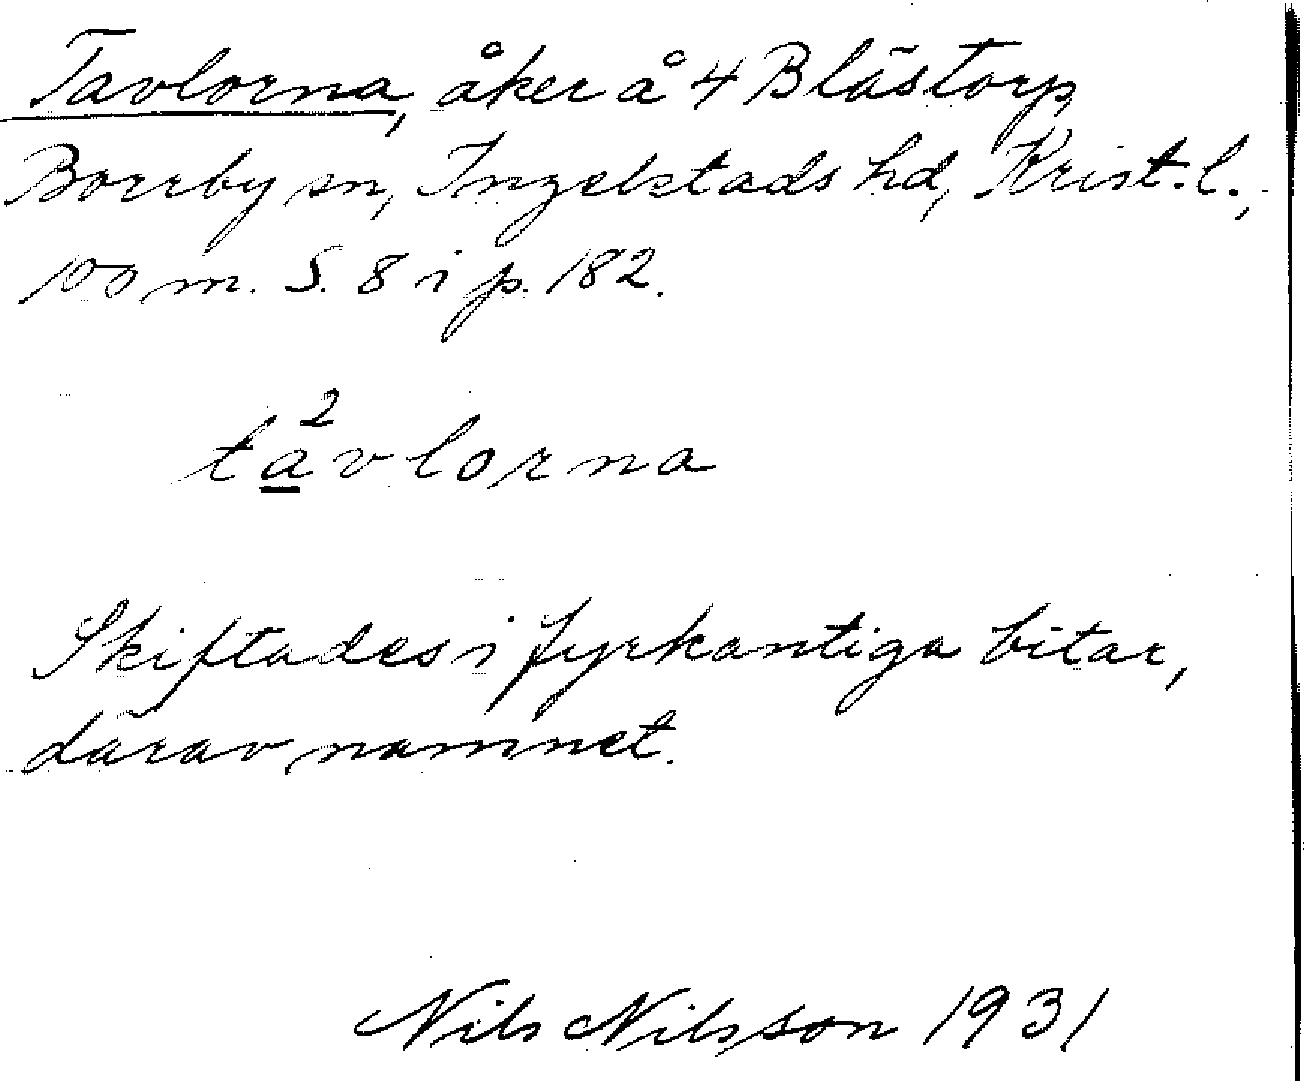 Tavlorna, åker å 4 Blästorp
Borrby sn, Ingelstads hd, Krist.l.,
100 m. S. 8 i p. 182.
ta²vlorna
Skiftades i fyrkantiga bitar,
därav namnet.
Nils Nilsson 1931